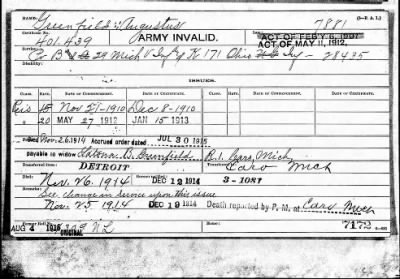 Greenfield, Augustus 7881 [3—B. A. I.]
Certificate No. Name.
401.439 ARMY INVALID. ACT OF FEB'Y 6, 1907
ACT OF MAY 11, 1912.
Co B 29 Mich V Infy K 171 Ohio Infy - 28435
Disability:
ISSUES.
CLASS. RATE. DATE OF ISSUE. DATE OF CERTIFICATE. CLASS. RATE.
Reis 15 Nov 21-1910 Dec 8-1910
20 MAY 27 1912 JAN 15 1913
Died Nov. 26 1914 Accrued order dated JUL 30 1915
payable to widow B. Greenfield, R.1. Caro, Mich
DETROIT Caro Mich
Nov. 26. 1914 DEC 12 1914 3-1081
See change in service upon this issue
Nov. 25 1914 DEC 19 1914 Death reported by P. M. at Caro Mich
AUG 4 1915 ORIGINAL 7172